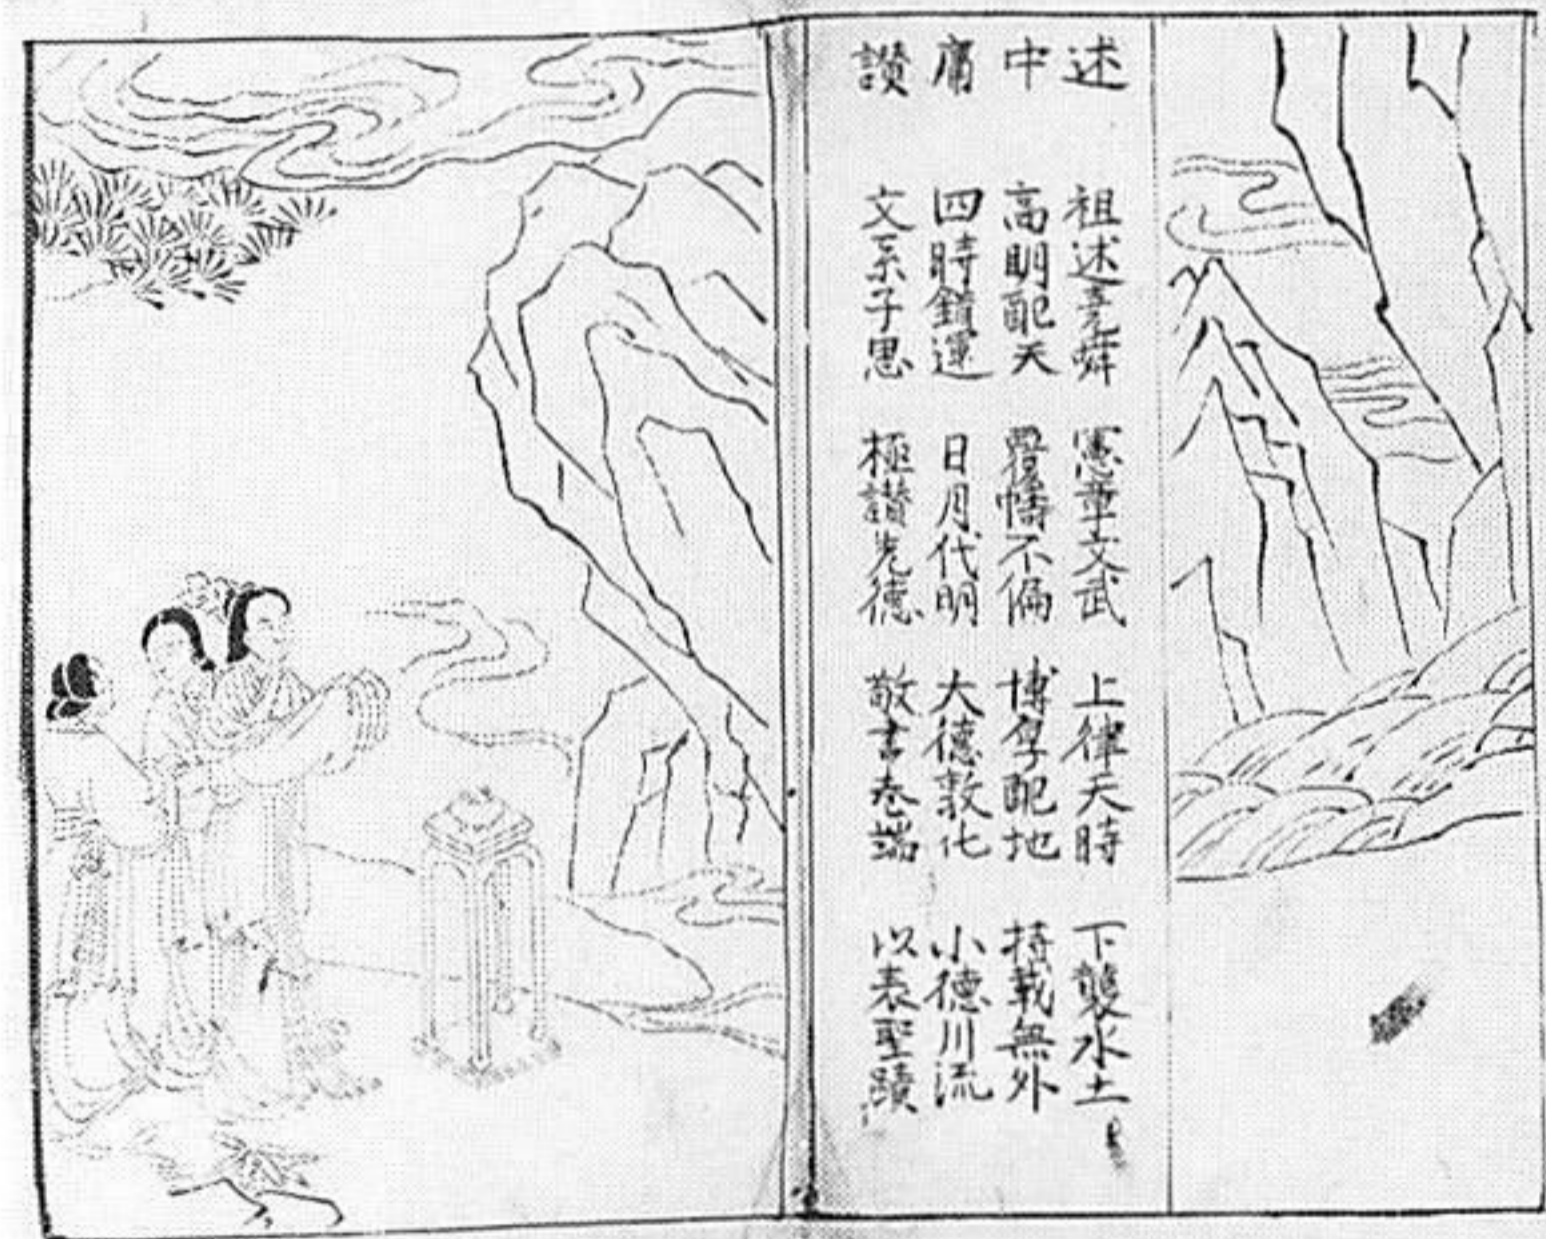 述 祖述堯舜 憲章文武 上律天時 下襲水土
中 高明配天 覆幬不偏 博厚配地 持載無外
庸 四時錯運 日月代明 大德敦化 小德川流
讃 文系子思 極讃先德 敬書卷端 以表聖蹟